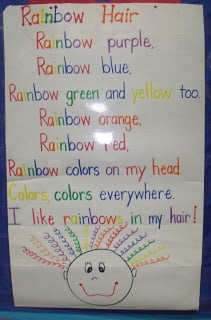 Rainbow Hair
Rainbow purple,
Rainbow blue,
Rainbow green and yellow too.
Rainbow orange,
Rainbow red,
Rainbow colors on my head.
Colors, colors everywhere.
I like rainbows in my hair!